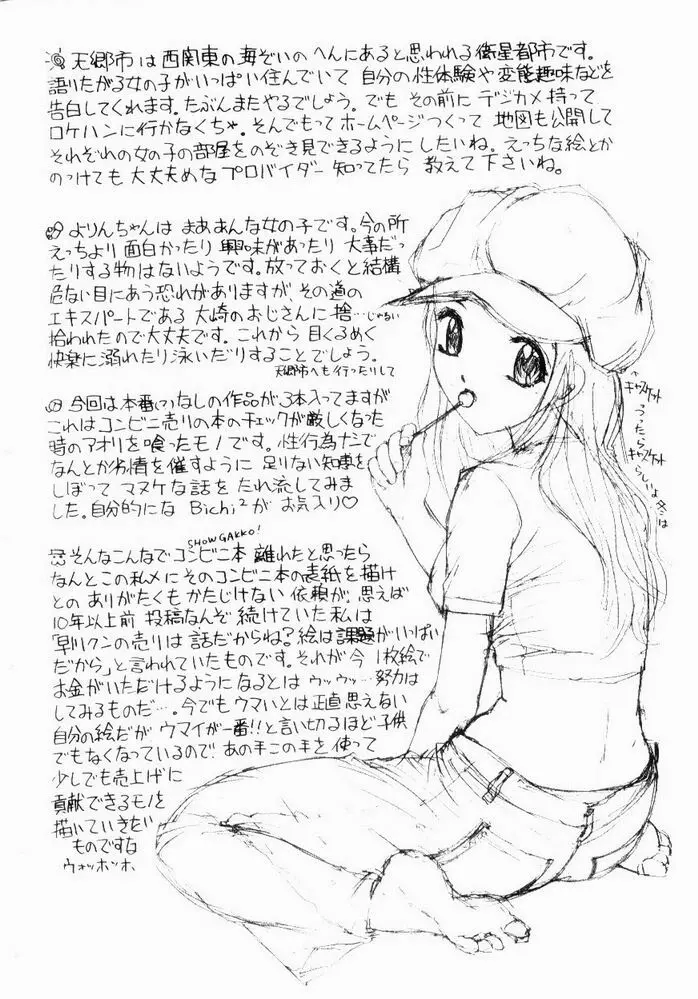 天郷市は西関東の海ぞいのへんにあると思われる衛星都市です。
語りたがる女の子がいっぱい住んでいて 自分の性体験や変態趣味などを
告白してくれます。たぶんまたやるでしょう。でも その前に デジカメ持って
ロケハンに行かなくちゃ。そんでもってホームページつくって 地図も公開して
それぞれの女の子の部屋をのぞき見できるようにしたいね。えっちな絵とか
のっけても大丈夫めなプロバイダー知ってたら 教えて下さいね。
よりんちゃんは まああんな女の子です。今の所
えっちより面白かったり 興味があったり 大事だっ
たりする物はないようです。放っておくと結構
危ない目にあう恐れがありますが、その道の
エキスパートである 大崎のおじさんに 捨…じゃない
拾われたので大丈夫です。これから 目くるめく
快楽に溺れたり泳いだりすることでしょう。
天郷市へも行ったりして
今回は本番(?)なしの作品が3本入ってますが
これはコンビニ売りの本のチェックが厳しくなった
時のアオリを喰ったモノです。性行為なしで
なんとか劣情を催すように 足りない知恵を
しぼって マヌケな話を たれ流してみま
した。自分的にな Bichi²が お気入り♡
SHOWGAKKO!
そんなこんなでコンビニ本 離れたと思ったら
なんとこの私メにそのコンビニ本の表紙を描け
との ありがたくもかたじけない 依頼が、思えば
10年以上前 投稿なんぞ続けていた私は
「早リクンの売りは 話だからね?絵は課題がいっぱい
だから」と言われていたものです。それが今 1枚絵で
お金がいただけるようになるとは ウッウッ…努力は
してみるものだ…。今でもウマいとは正直思えない
自分の絵だが ウマイが一番!!と言い切るほど子供
でもなくなっているので! あの手この手を使って
少しでも売上げに
貢献できるモノを
描いていきたい
ものですな
ウォッホッホ
キャスケット
うったら
キャスケット
らしいよ